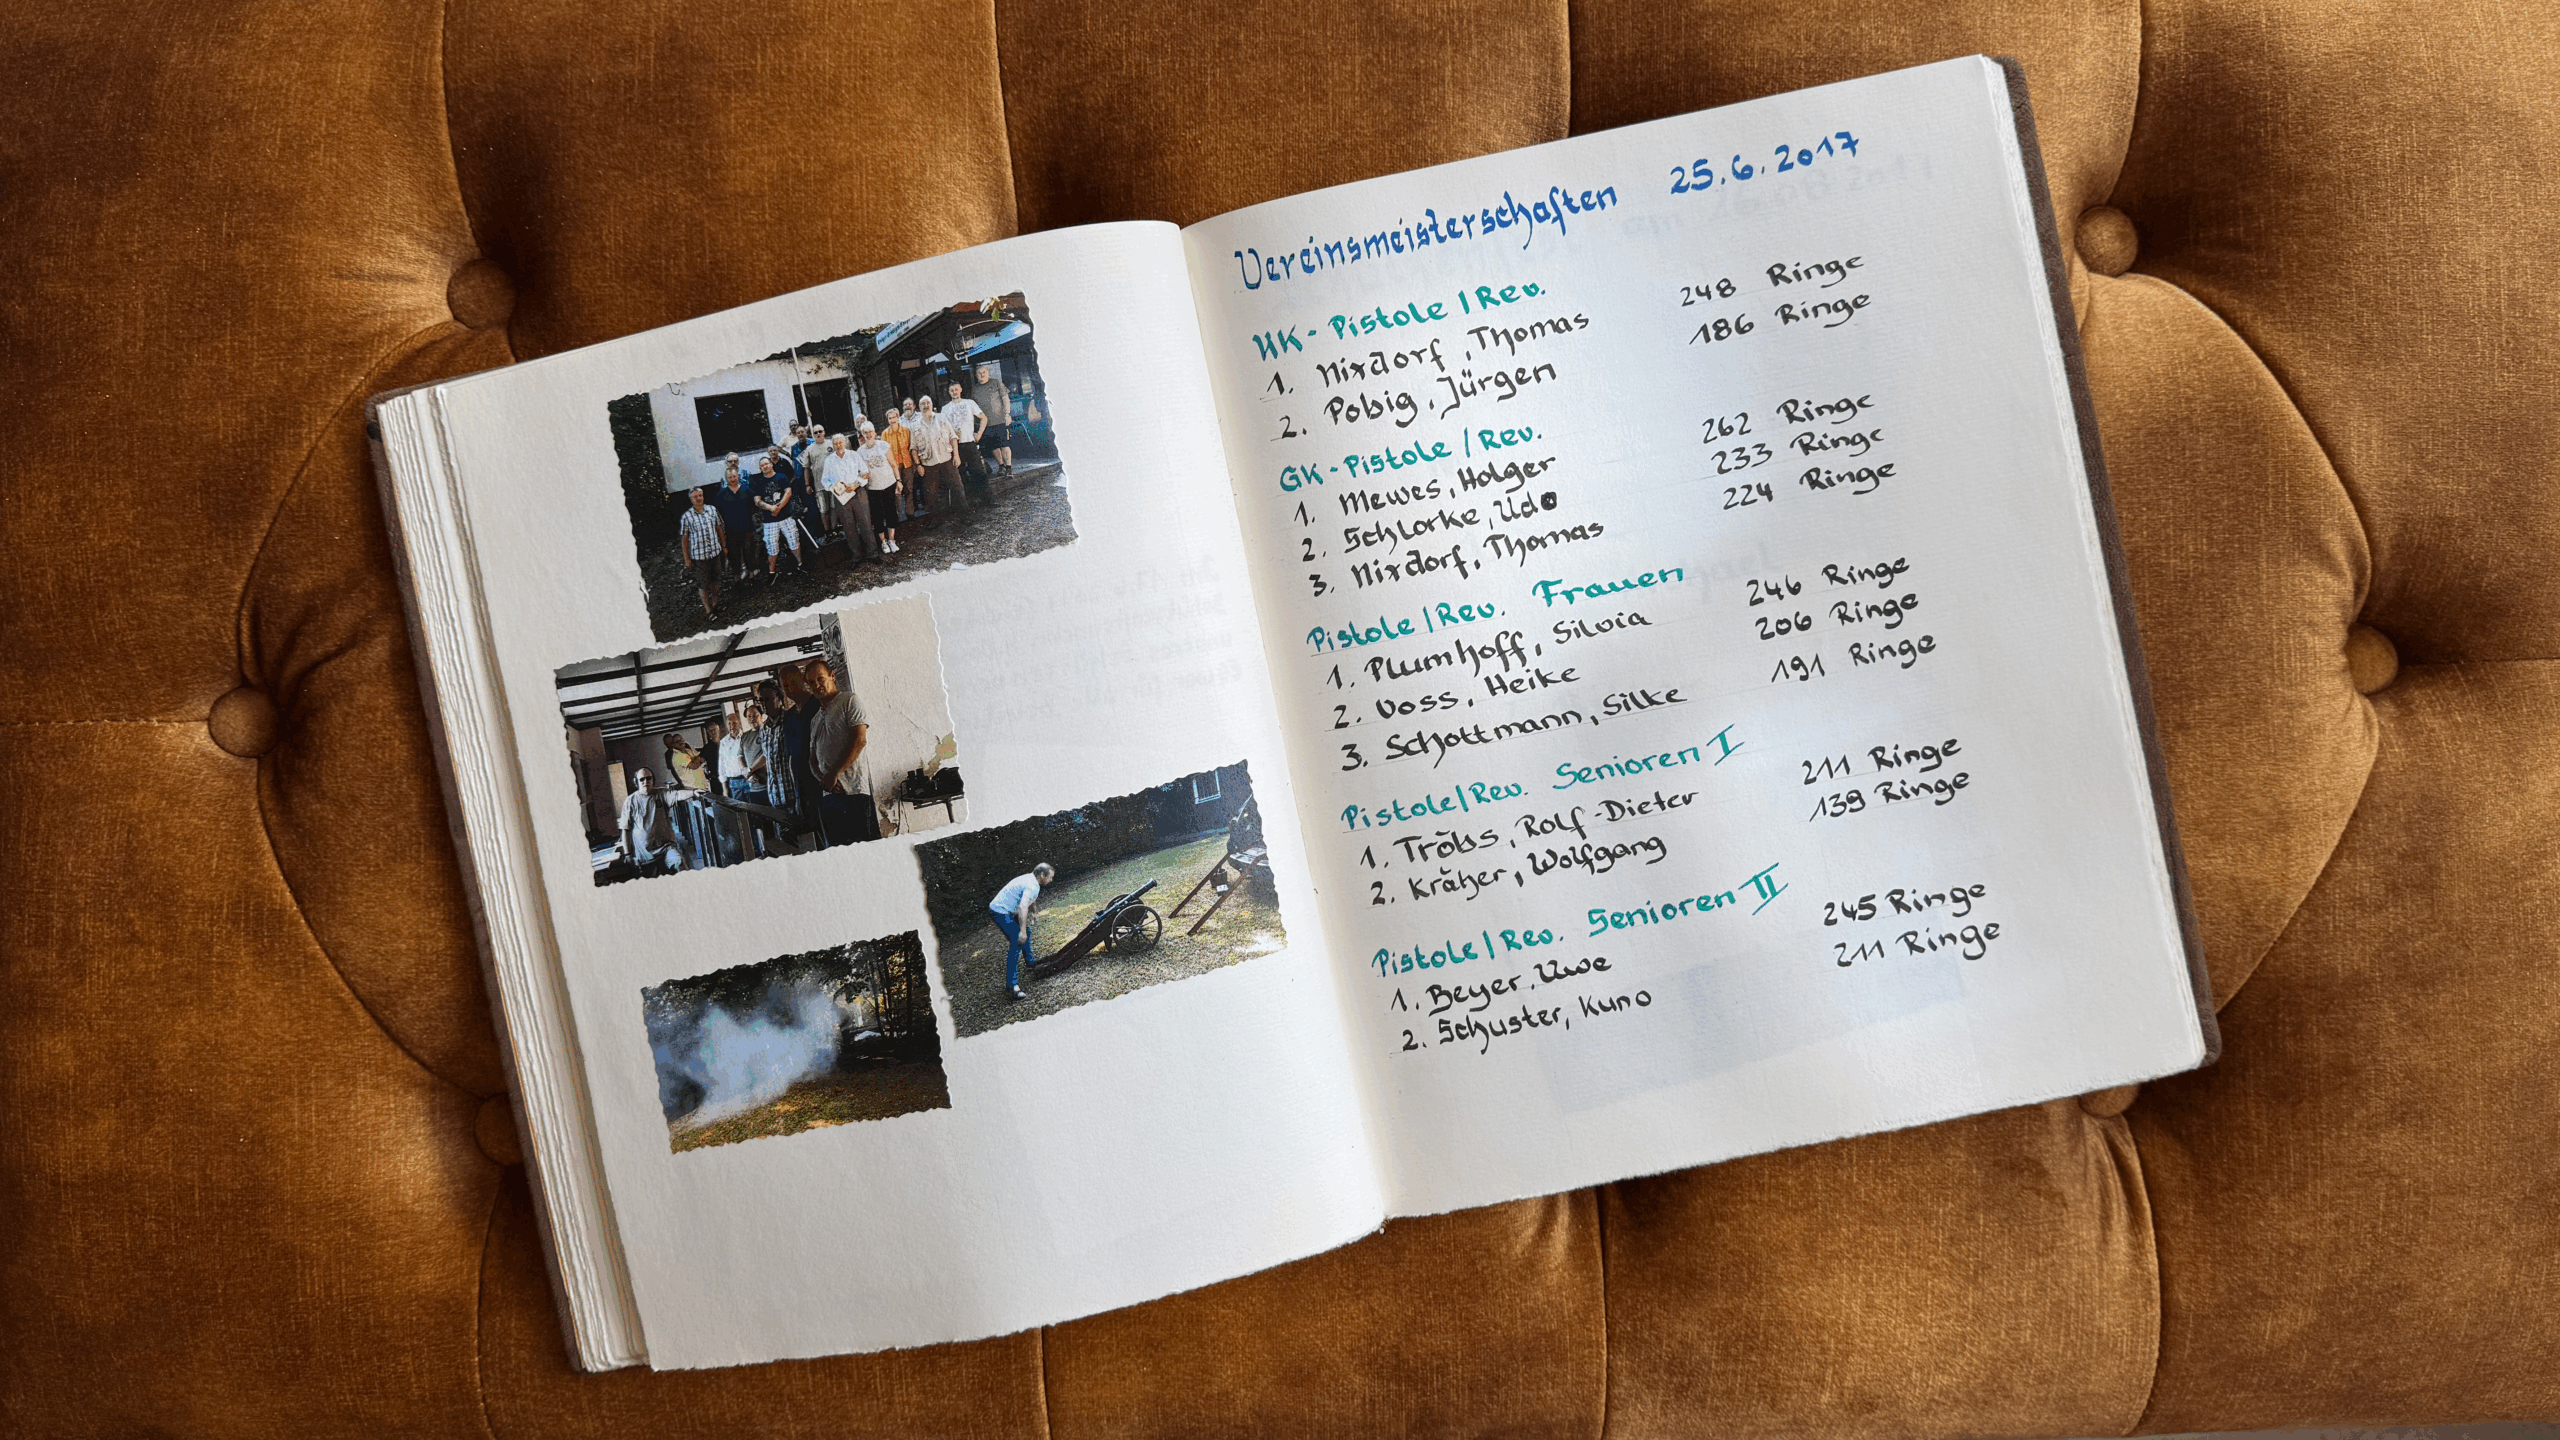 Vereinsmeisterschaften 25.6.2017
KK-Pistole/Rev.
1. Nixdorf, Thomas 248 Ringe
2. Pobig, Jürgen 186 Ringe
GK-Pistole/Rev.
1. Mewes, Holger 262 Ringe
2. Schlorke, Udo 233 Ringe
3. Nixdorf, Thomas 224 Ringe
Pistole/Rev. Frauen
1. Plumhoff, Silvia 246 Ringe
2. Voss, Heike 206 Ringe
3. Schottmann, Silke 191 Ringe
Pistole/Rev. Senioren I
1. Tröbs, Rolf-Dieter 211 Ringe
2. Kräher, Wolfgang 139 Ringe
Pistole/Rev. Senioren II
1. Beyer, Uwe 245 Ringe
2. Schuster, Kuno 211 Ringe